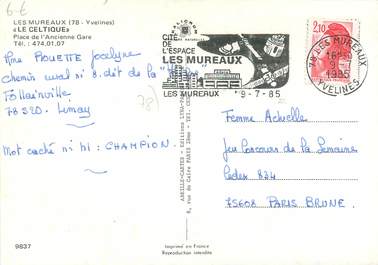 6-€
LES MUREAUX (78 - Yvelines)
«LE CELTIQUE»
Place de l'Ancienne Gare
Tél. : 474.01.07
Mme PLOUETTE Jocelyne
chemin rural n: 8. dit de la "
Follainville
78520. Limay
Mot caché n: 41: CHAMPION.
78)
CITÉ
DE
L'ESPACE
LES MUREAUX
LES MUREAUX
9-7-85
78 LES MUREAUX
16H30
9-7
1985
YVELINES
2,10
Femme Actuelle
Jeu Parcours de la Semaine
Cedex 834
75608 PARIS BRUNE.
ABEILLE-CARTES - Editions LYNA-PARIS
8, rue du Caire PARIS 2ème - Tél.
9837
Imprimé en France
Reproduction interdite